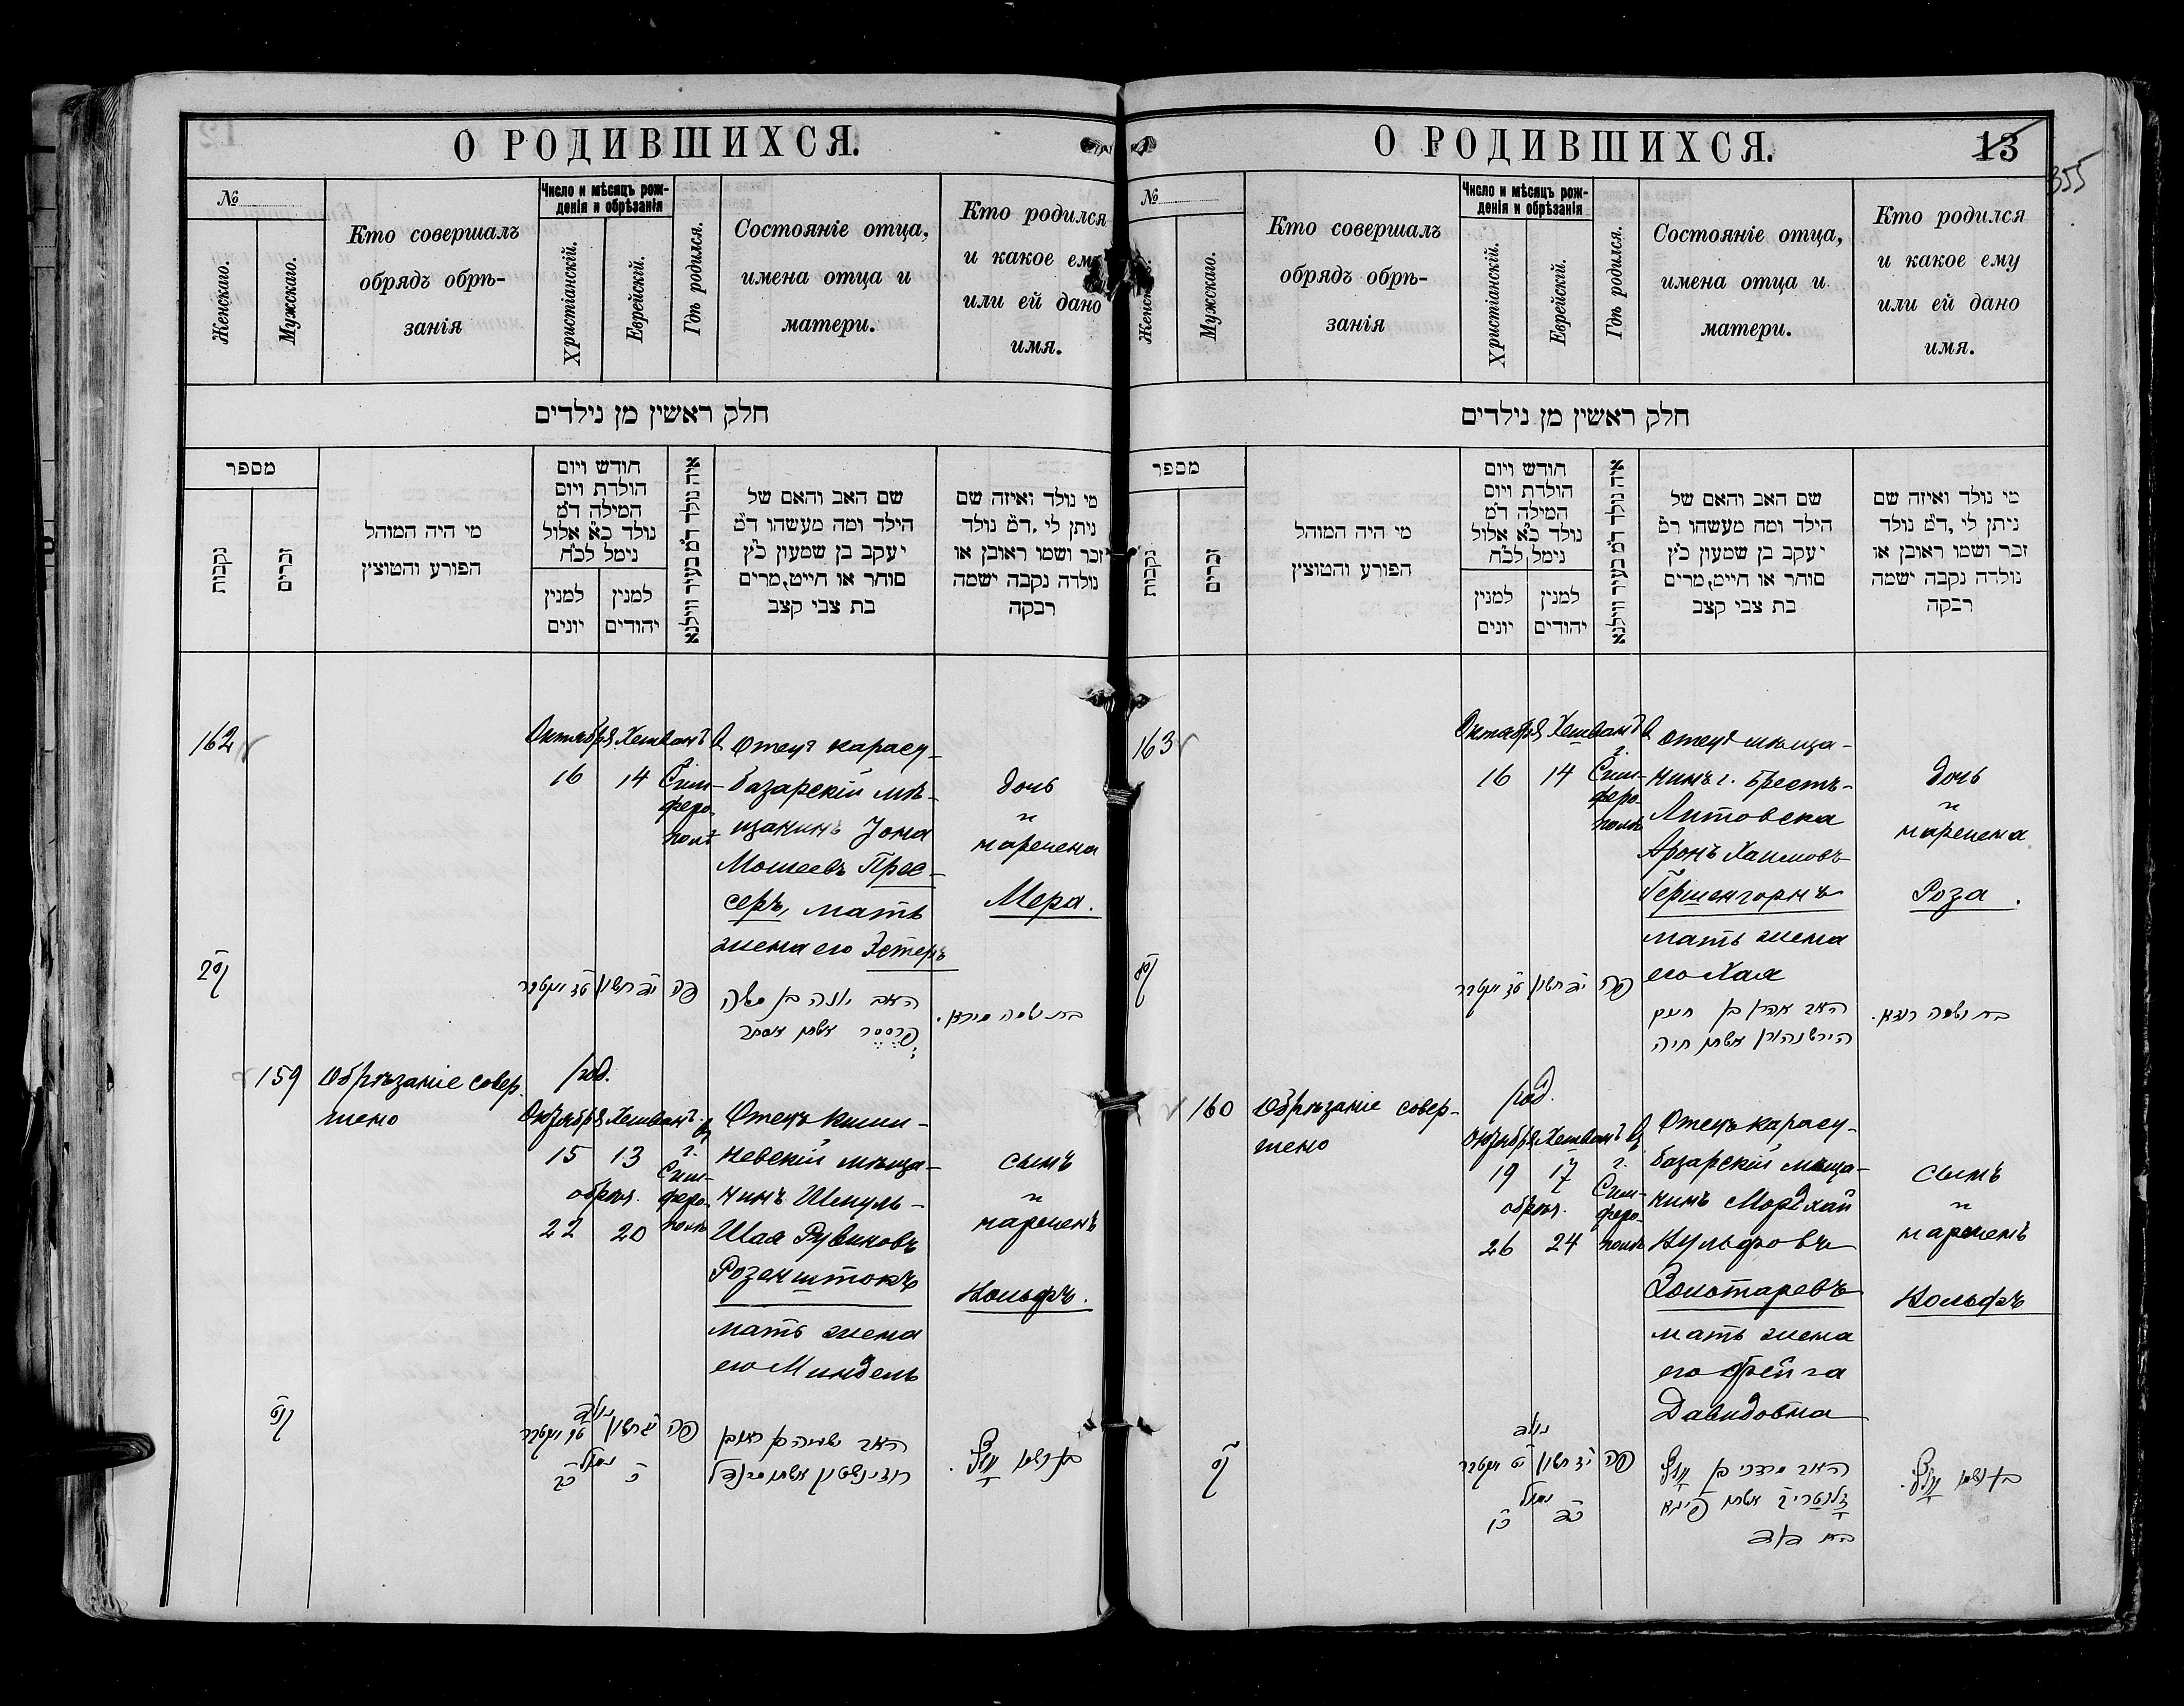 О РОДИВШИХСЯ.
№
Женскаго.
Мужскаго.
Кто совершалъ
обрядъ обрѣ-
занія
Число и мѣсяцъ рож-
денія и обрѣзанія
Христіанскій.
Еврейскій.
Гдѣ родился.
Состояніе отца,
имена отца и
матери.
Кто родился
и какое ему
или ей дано
имя.
חלק ראשין מן נילדים
מספר
נקבות
זכרים
מי היה המוהל
הפורע והטוצין
חודש ויום
הולדת ויום
המילה ד״מ
נולד כ״א אלול
נימל לכ״ח
למנין
יונים
למנין
יהודים
איה נולד ד״מ בעיר ווילנא
שם האב והאם של
הילד ומה מעשהו ד״מ
יעקב בן שמעון כ״ץ
סוחר או חייט, מרים
בת צבי קצב
מי נולד ואיזה שם
ניתן לי, ד״מ נולד
זכר ושמו ראובן או
נולדה נקבה ישמה
רבקה
162
Октября Хешванъ В
16 14
г.
Сим-
феро-
полѣ
Отецъ карасу-
базарскій мѣ-
щанинъ Іона
Мошеевъ Прес-
серъ, мать
жена его Эстеръ
дочь
и
наречена
Мера.
פה
האב יונה בן משה
פרססר אשתו אסתר
בת ושמה מירא.
159
Обрѣзаніе совер-
шено
род.
Октября Хешванъ В
15 13
обрѣз.
22 20
г.
Сим-
феро-
полѣ
Отецъ Киши-
невскій мѣща-
нинъ Шмуль-
Шая Рувиновъ
Розенштокъ
мать жена
его Миндель
сынъ
и
нареченъ
Вольфъ.
נולד
נימול
פה
בן ושמו וואלף.
О РОДИВШИХСЯ.
13
355
№
Женскаго.
Мужскаго.
Кто совершалъ
обрядъ обрѣ-
занія
Число и мѣсяцъ рож-
денія и обрѣзанія
Христіанскій.
Еврейскій.
Гдѣ родился.
Состояніе отца,
имена отца и
матери.
Кто родился
и какое ему
или ей дано
имя.
חלק ראשין מן נילדים
מספר
נקבות
זכרים
מי היה המוהל
הפורע והטוצין
חודש ויום
הולדת ויום
המילה ד״מ
נולד כ״א אלול
נימל לכ״ח
למנין
יונים
למנין
יהודים
איה נולד ד״מ בעיר ווילנא
שם האב והאם של
הילד ומה מעשהו ד״מ
יעקב בן שמעון כ״ץ
סוחר או חייט, מרים
בת צבי קצב
מי נולד ואיזה שם
ניתן לי, ד״מ נולד
זכר ושמו ראובן או
נולדה נקבה ישמה
רבקה
163
Октября Хешванъ В
16 14
г.
Сим-
феро-
полѣ
Отецъ мѣща-
нинъ г. Брестъ-
Литовска
Аронъ Хаимовъ
Гершенгорнъ
мать жена
его Хая
дочь
и
наречена
Роза.
פה
האב אהרן בן חיים
הירשנהורן אשתו חיה
בת ושמה רוזא.
160
Обрѣзаніе совер-
шено
род.
Октября Хешванъ В
19 17
обрѣз.
26 24
г.
Сим-
феро-
полѣ
Отецъ карасу-
базарскій мѣща-
нинъ Мордхай
Вульфовъ
Золотаревъ
мать жена
его Фейга
Давидовна
сынъ
и
нареченъ
Вольфъ
נולד
נימול
פה
האב מרדכי בן וואלף
אשתו פייגא
בת דוד
בן ושמו וואלף.